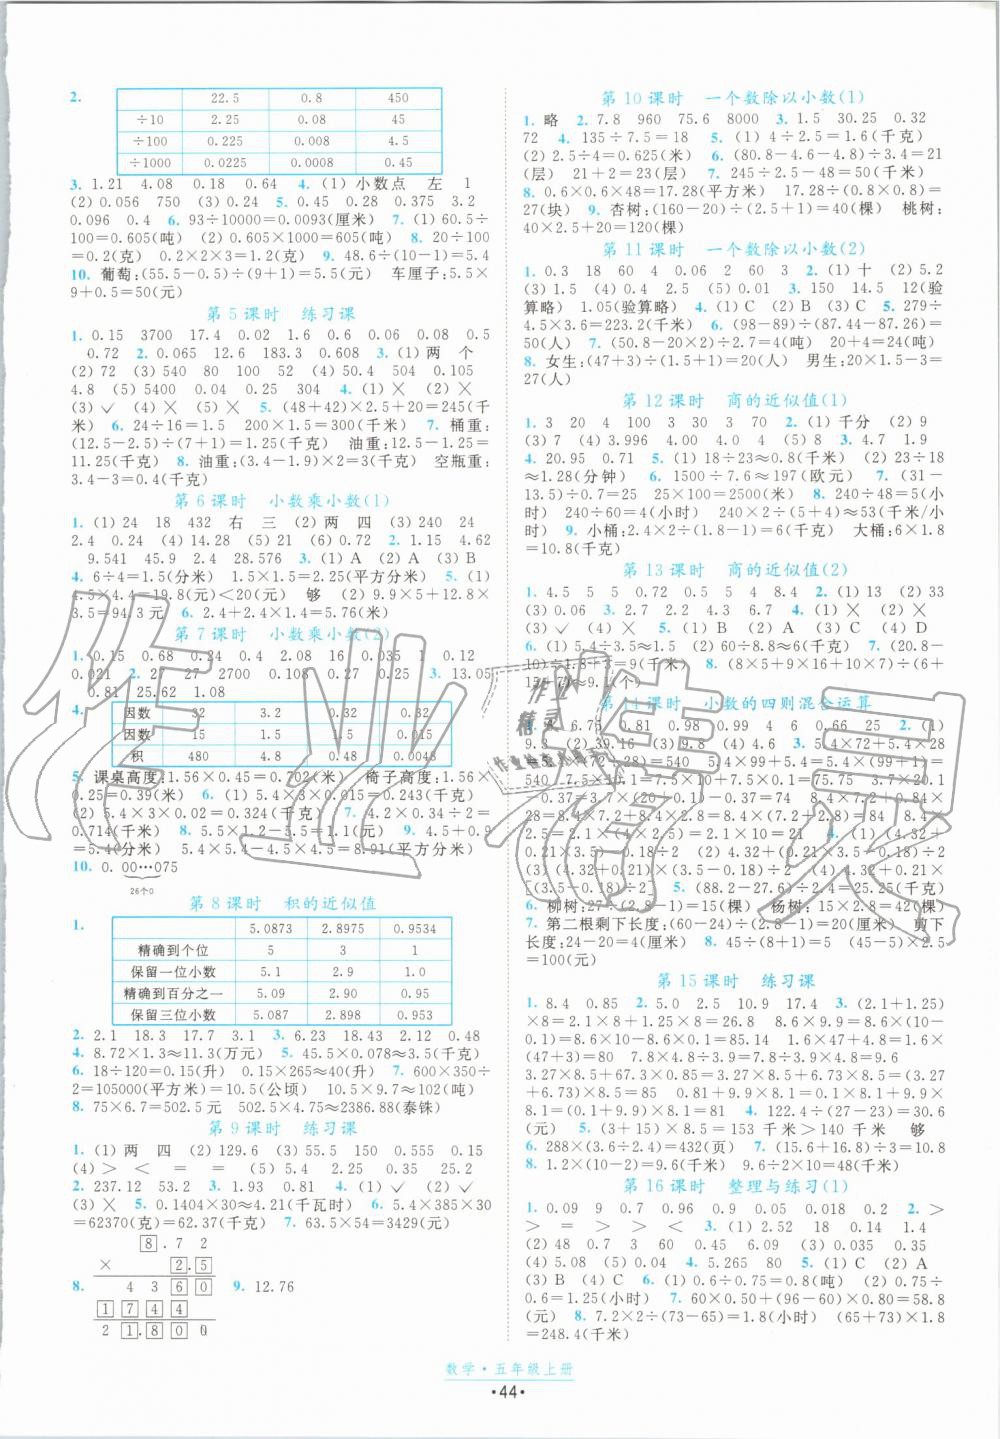 2.
22.5 0.8 450
÷10 2.25 0.08 45
÷100 0.225 0.008 4.5
÷1000 0.0225 0.0008 0.45
3. 1.21 4.08 0.18 0.64 4. (1) 小数点 左 1
(2) 0.056 750 (3) 0.24 5. 0.45 0.28 0.375 3.2
0.096 0.4 6. 93÷10000=0.0093(厘米) 7. (1) 60.5÷
100=0.605(吨) (2) 0.605×1000=605(吨) 8. 20÷100
=0.2(克) 0.2×2×3=1.2(克) 9. 48.6÷(10-1)=5.4
10. 葡萄:(55.5-0.5)÷(9+1)=5.5(元) 车厘子:5.5×
9+0.5=50(元)
第5课时 练习课
1. 0.15 3700 17.4 0.02 1.6 0.6 0.06 0.08 0.5
0.72 2. 0.065 12.6 183.3 0.608 3. (1) 两 个
(2) 72 (3) 540 80 100 52 (4) 50.4 0.504 0.105
4.8 (5) 5400 0.04 0.25 304 4. (1) × (2) ×
(3) ✓ (4) × (5) × 5. (48+42)×2.5+20=245(千
米) 6. 24÷16=1.5 200×1.5=300(千克) 7. 桶重:
(12.5-2.5)÷(7+1)=1.25(千克) 油重:12.5-1.25=
11.25(千克) 8. 油重:(3.4-1.9)×2=3(千克) 空瓶重:
3.4-3=0.4(千克)
第6课时 小数乘小数(1)
1. (1) 24 18 432 右 三 (2) 两 四 (3) 240 24
2.4 0.24 (4) 14.28 (5) 21 (6) 0.72 2. 1.15 4.62
9.541 45.9 2.4 28.576 3. (1) A (2) A (3) B
4. 6÷4=1.5(分米) 1.5×1.5=2.25(平方分米) 5. (1)
4.5×4.4=19.8(元)<20(元) 够 (2) 9.9×5+12.8×
3.5=94.3 元 6. 2.4+2.4×1.4=5.76(米)
第7课时 小数乘小数(2)
1. 0.15 0.68 0.24 0.4 2.08 16 0.035 1 0.12
0.021 2. 27 27 2700 0.27 0.27 0.27 3. 13.05
0.81 25.62 1.08
4.
因数 32 3.2 0.32 0.32
因数 15 1.5 1.5 0.015
积 480 4.8 0.48 0.0048
5. 课桌高度:1.56×0.45=0.702(米) 椅子高度:1.56×
0.25=0.39(米) 6. (1) 5.4×3×0.015=0.243(千克)
(2) 5.4×3×0.02=0.324(千克) 7. 4.2×0.34÷2=
0.714(千米) 8. 5.5×1.2-5.5=1.1(米) 9. 4.5+0.9
=5.4(分米) 5.4×5.4-4.5×4.5=8.91(平方分米)
10. 0.00…075
26个0
第8课时 积的近似值
1.
5.0873 2.8975 0.9534
精确到个位 5 3 1
保留一位小数 5.1 2.9 1.0
精确到百分之一 5.09 2.90 0.95
保留三位小数 5.087 2.898 0.953
2. 2.1 18.3 17.7 3.1 3. 6.23 18.43 2.12 0.48
4. 8.72×1.3≈11.3(万元) 5. 45.5×0.078≈3.5(千克)
6. 18÷120=0.15(升) 0.15×265≈40(升) 7. 600×350
÷2=105000(平方米)=10.5(公顷) 10.5×9.7≈102(吨)
8. 75×6.7=502.5 元 502.5×4.75≈2386.88(泰铢)
第9课时 练习课
1. (1) 两 四 (2) 129.6 (3) 55.5 150 0.555 0.15
(4) > < = = > (5) 22.1 4.4 0.35 25.2
2. 237.12 53.2 3. 1.93 0.81 4. (1) ✓ (2) ✓
(3) × 5. 0.1404×30≈4.21(千瓦时) 6. 5.4×385×30
=62370(克)=62.37(千克) 7. 63.5×54=3429(元)
8.72
× 2.5
8. 4360 9. 12.76
1744
21.800
第10课时 一个数除以小数(1)
1. 略 2. 7.8 960 75.6 8000 3. 1.5 30.25 0.32
72 4. 135÷7.5=18 5. (1) 4÷2.5=1.6(千克)
(2) 2.5÷4=0.625(米) 6. (80.8-4.6-4.8)÷3.4=21
(层) 21+2=23(层) 7. 245÷2.5-48=50(千米)
8. 0.6×0.6×48=17.28(平方米) 17.28÷(0.8×0.8)=
27(块) 9. 杏树:(160-20)÷(2.5+1)=40(棵) 桃树:
40×2.5+20=120(棵)
第11课时 一个数除以小数(2)
1. 0.3 18 60 4 0.06 2 60 3 2. (1) 十 (2) 5.2
(3) 1.5 (4) 26 2.5 (5) 0.01 3. 150 14.5 12(验
算略) 1.05(验算略) 4. (1) C (2) B (3) C 5. 279÷
4.5×3.6=223.2(千米) 6. (98-89)÷(87.44-87.26)=
50(人) 7. (50.8-20×2)÷2.7=4(吨) 20+4=24(吨)
8. 女生:(47+3)÷(1.5+1)=20(人) 男生:20×1.5-3=
27(人)
第12课时 商的近似值(1)
1. 3 20 4 100 3 30 70 3 2. (1) 千分 (2) 9
(3) 7 (4) 3.996 4.00 4.0 (5) 8 3. 4.7 1.9
4. 20.95 0.71 5. (1) 18÷23≈0.8(千米) (2) 23÷18
≈1.28(分钟) 6. 1500÷7.6≈197(欧元) 7. (31-
13.5)÷0.7=25 25×100=2500(米) 8. 240÷48=5(小
时) 240×2=480(千米) 240×2÷(5+4)≈53(千米/小
时) 9. 小桶:2.4×2÷(1.8-1)=6(千克) 大桶:6×1.8
=10.8(千克)
第13课时 商的近似值(2)
1. 4.5 5 5 0.72 0.5 5 4 8.4 2. (1) 13 (2) 33
(3) 0.6 3. 2.7 2.2 4.3 6.7 4. (1) × (2) ×
(3) ✓ (4) × 5. (1) B (2) A (3) C (4) D
6. (1) 5.4÷3.5≈1.5 (2) 60÷8.8≈6(千克) 7. (20.8-
10)÷1.8+3=9(千米) 8. (8×5+9×16+10×7)÷(5+
16+7)≈9.1(个)
第14课时 小数的四则混合运算
6.75 0.81 0.98 0.99 4 6 0.66 25 2. (1)
9.3 (2) 39.16 (3) 9.8 (4) 4.4 3. 5.4×72+5.4×28
=540 5.4×99+5.4=5.4×(99+1)=
540 7.5×10.1=7.5×10+7.5×0.1=75.75 3.7×20.1
-0.37×1=3.7×(20+0.1)-0.37=74 8.4×7.2+0.84×
28=8.4×7.2+8.4×2.8=8.4×(7.2+2.8)=84 8.4÷
2.5=2.1×(4×2.5)=2.1×10=21 4. (1) (4.32+
0.21×3.5)÷0.18 (2) 4.32+0.21×(3.5-0.18)
(3.5-0.18)÷2 5. (88.2-27.6)÷2.4=25.25(千克)
6. 柳树:27÷(2.8-1)=15(棵) 杨树:15×2.8=42(棵)
7. 第二根剩下长度:(60-24)÷(2.5-1)=24(厘米) 剪下
长度:24-20=4(厘米) 8. 45÷(8+1)=5(米) 45×5=
225(千克)
第15课时 练习课
1. 8.4 0.85 2. 5.0 2.5 10.9 17.4 3. (2.1+1.25)
×8=2.1×8+1.25×8=26.8 8.6×9.9=8.6×(10-
0.1)=8.6×10-8.6×0.1=85.14 1.6×47+1.6×3=1.6×
(47+3)=80 7.8×4.8-4.8×5.8=4.8×(7.8-5.8)=9.6
3.27×8.5+6.73×8.5=(3.27
+6.73)×8.5=85 0.81×9.9+8.1×0.01=0.1×8.1+9.9×
8.1=(0.1+9.9)×8.1=81 4. 122.4÷(27-23)=30.6
(元) 5. (3+15)×8.5=153 千米>140 千米 够
6. 288×(3.6÷2.4)=432(页) 7. (15.6+16.8)÷3=10.8
8. 1.2×(10-2)=9.6(千米) 9.6÷2×10=48(千米)
第16课时 整理与练习(1)
1. 0.09 9 0.7 0.96 0.9 0.05 0.018 0.2 2. > >
> = > > < 3. (1) 2.52 18 0.14 1.4
(2) 48 0.7 3 60 0.45 6.09 (3) 0.035 0.35
(4) 5.08 5.10 (5) 0.06 4. 5.265 80 5. (1) A
(2) C (3) B (4) C 6. (1) 0.6÷0.75=0.8(吨) (2) 0.75÷
0.6=1.25(小时) 7. 60×0.50+(96-60)×0.80=58.8
(元) 8. 7.2×2÷(73-65)=1.8(小时) (65+73)×1.8
=248.4(千米)
数学·五年级上册
·44·
作业精灵